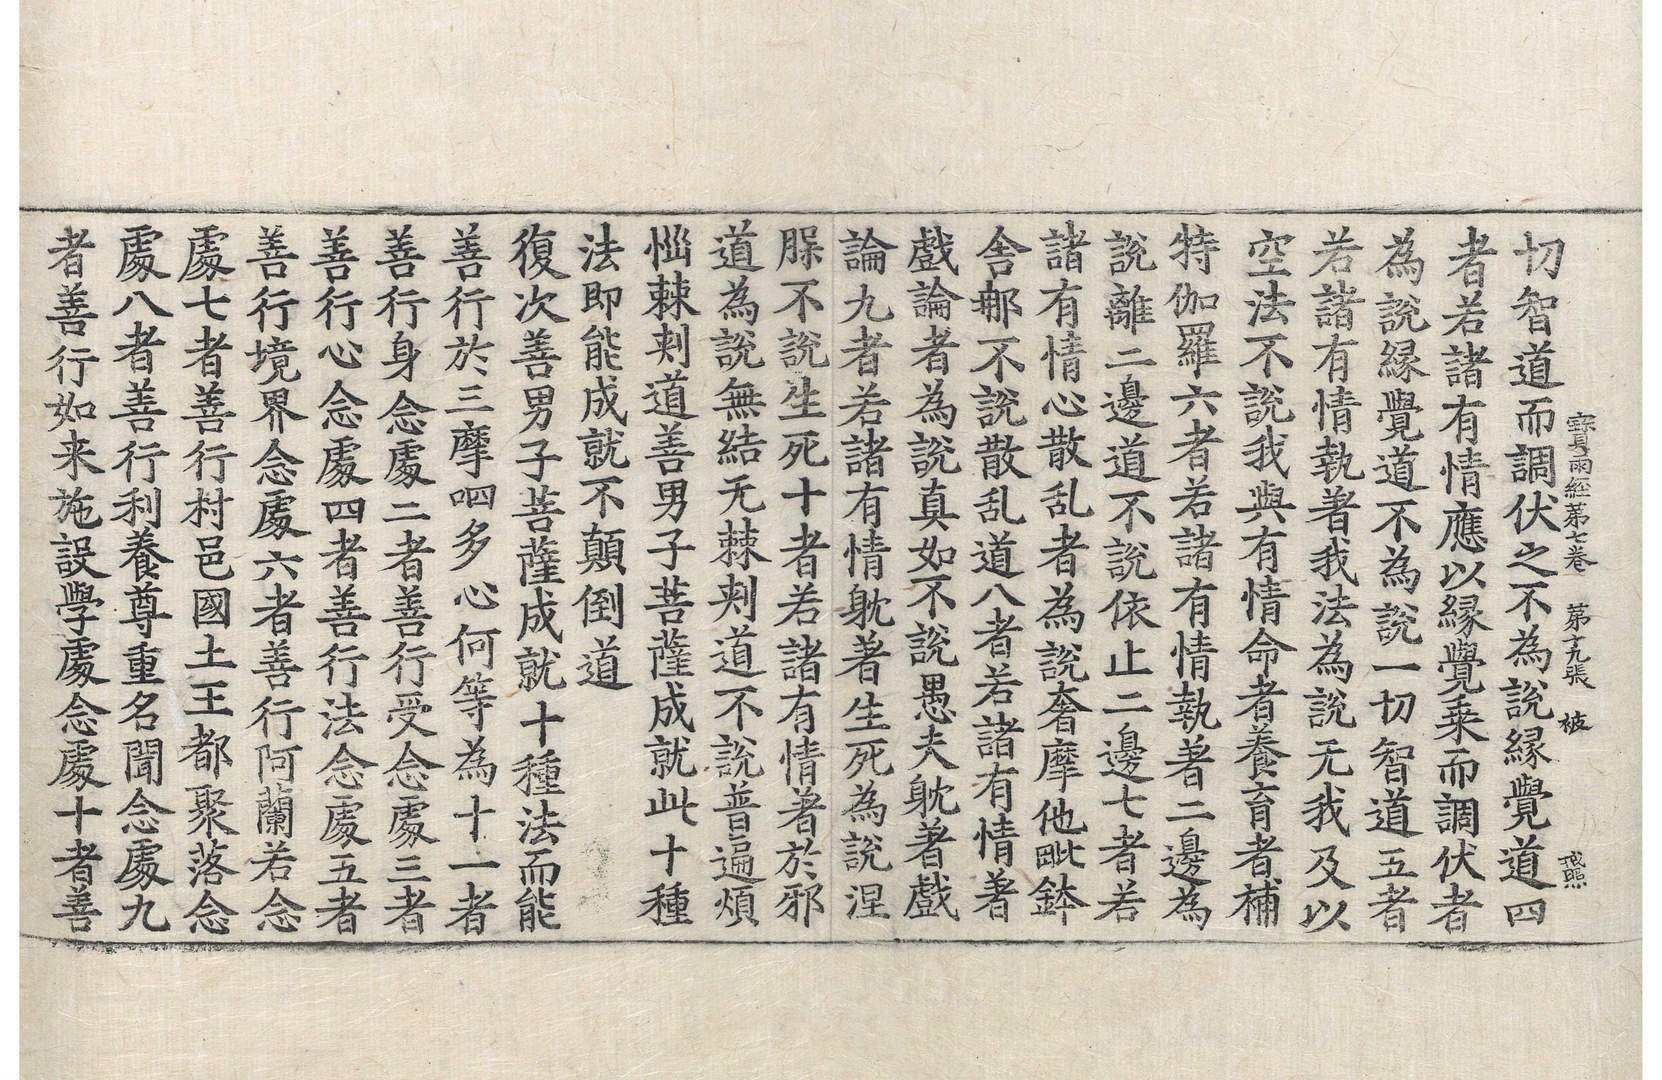 寶雨經第七卷 第十九張 被 戒熈
切智道而調伏之不為說縁覺道四
者若諸有情應以縁覺乗而調伏者
為說縁覺道不為說一切智道五者
若諸有情執著我法為說无我及以
空法不說我與有情命者養育者補
特伽羅六者若諸有情執著二邊為
說離二邊道不說依止二邊七者若
諸有情心散乱者為說奢摩他毗鉢
舎𨚗不說散乱道八者若諸有情著
戲論者為說真如不說愚夫躭著戲
論九者若諸有情躭著生死為說涅
𦝫不說生死十者若諸有情著於邪
道為說無結无棘刺道不說普遍煩
惱棘刺道善男子菩薩成就此十種
法即能成就不顛倒道
復次善男子菩薩成就十種法而能
善行於三摩呬多心何等為十一者
善行身念處二者善行受念處三者
善行心念處四者善行法念處五者
善行境界念處六者善行阿蘭若念
處七者善行村邑國土王都聚落念
處八者善行利養尊重名聞念處九
者善行如来施設學處念處十者善